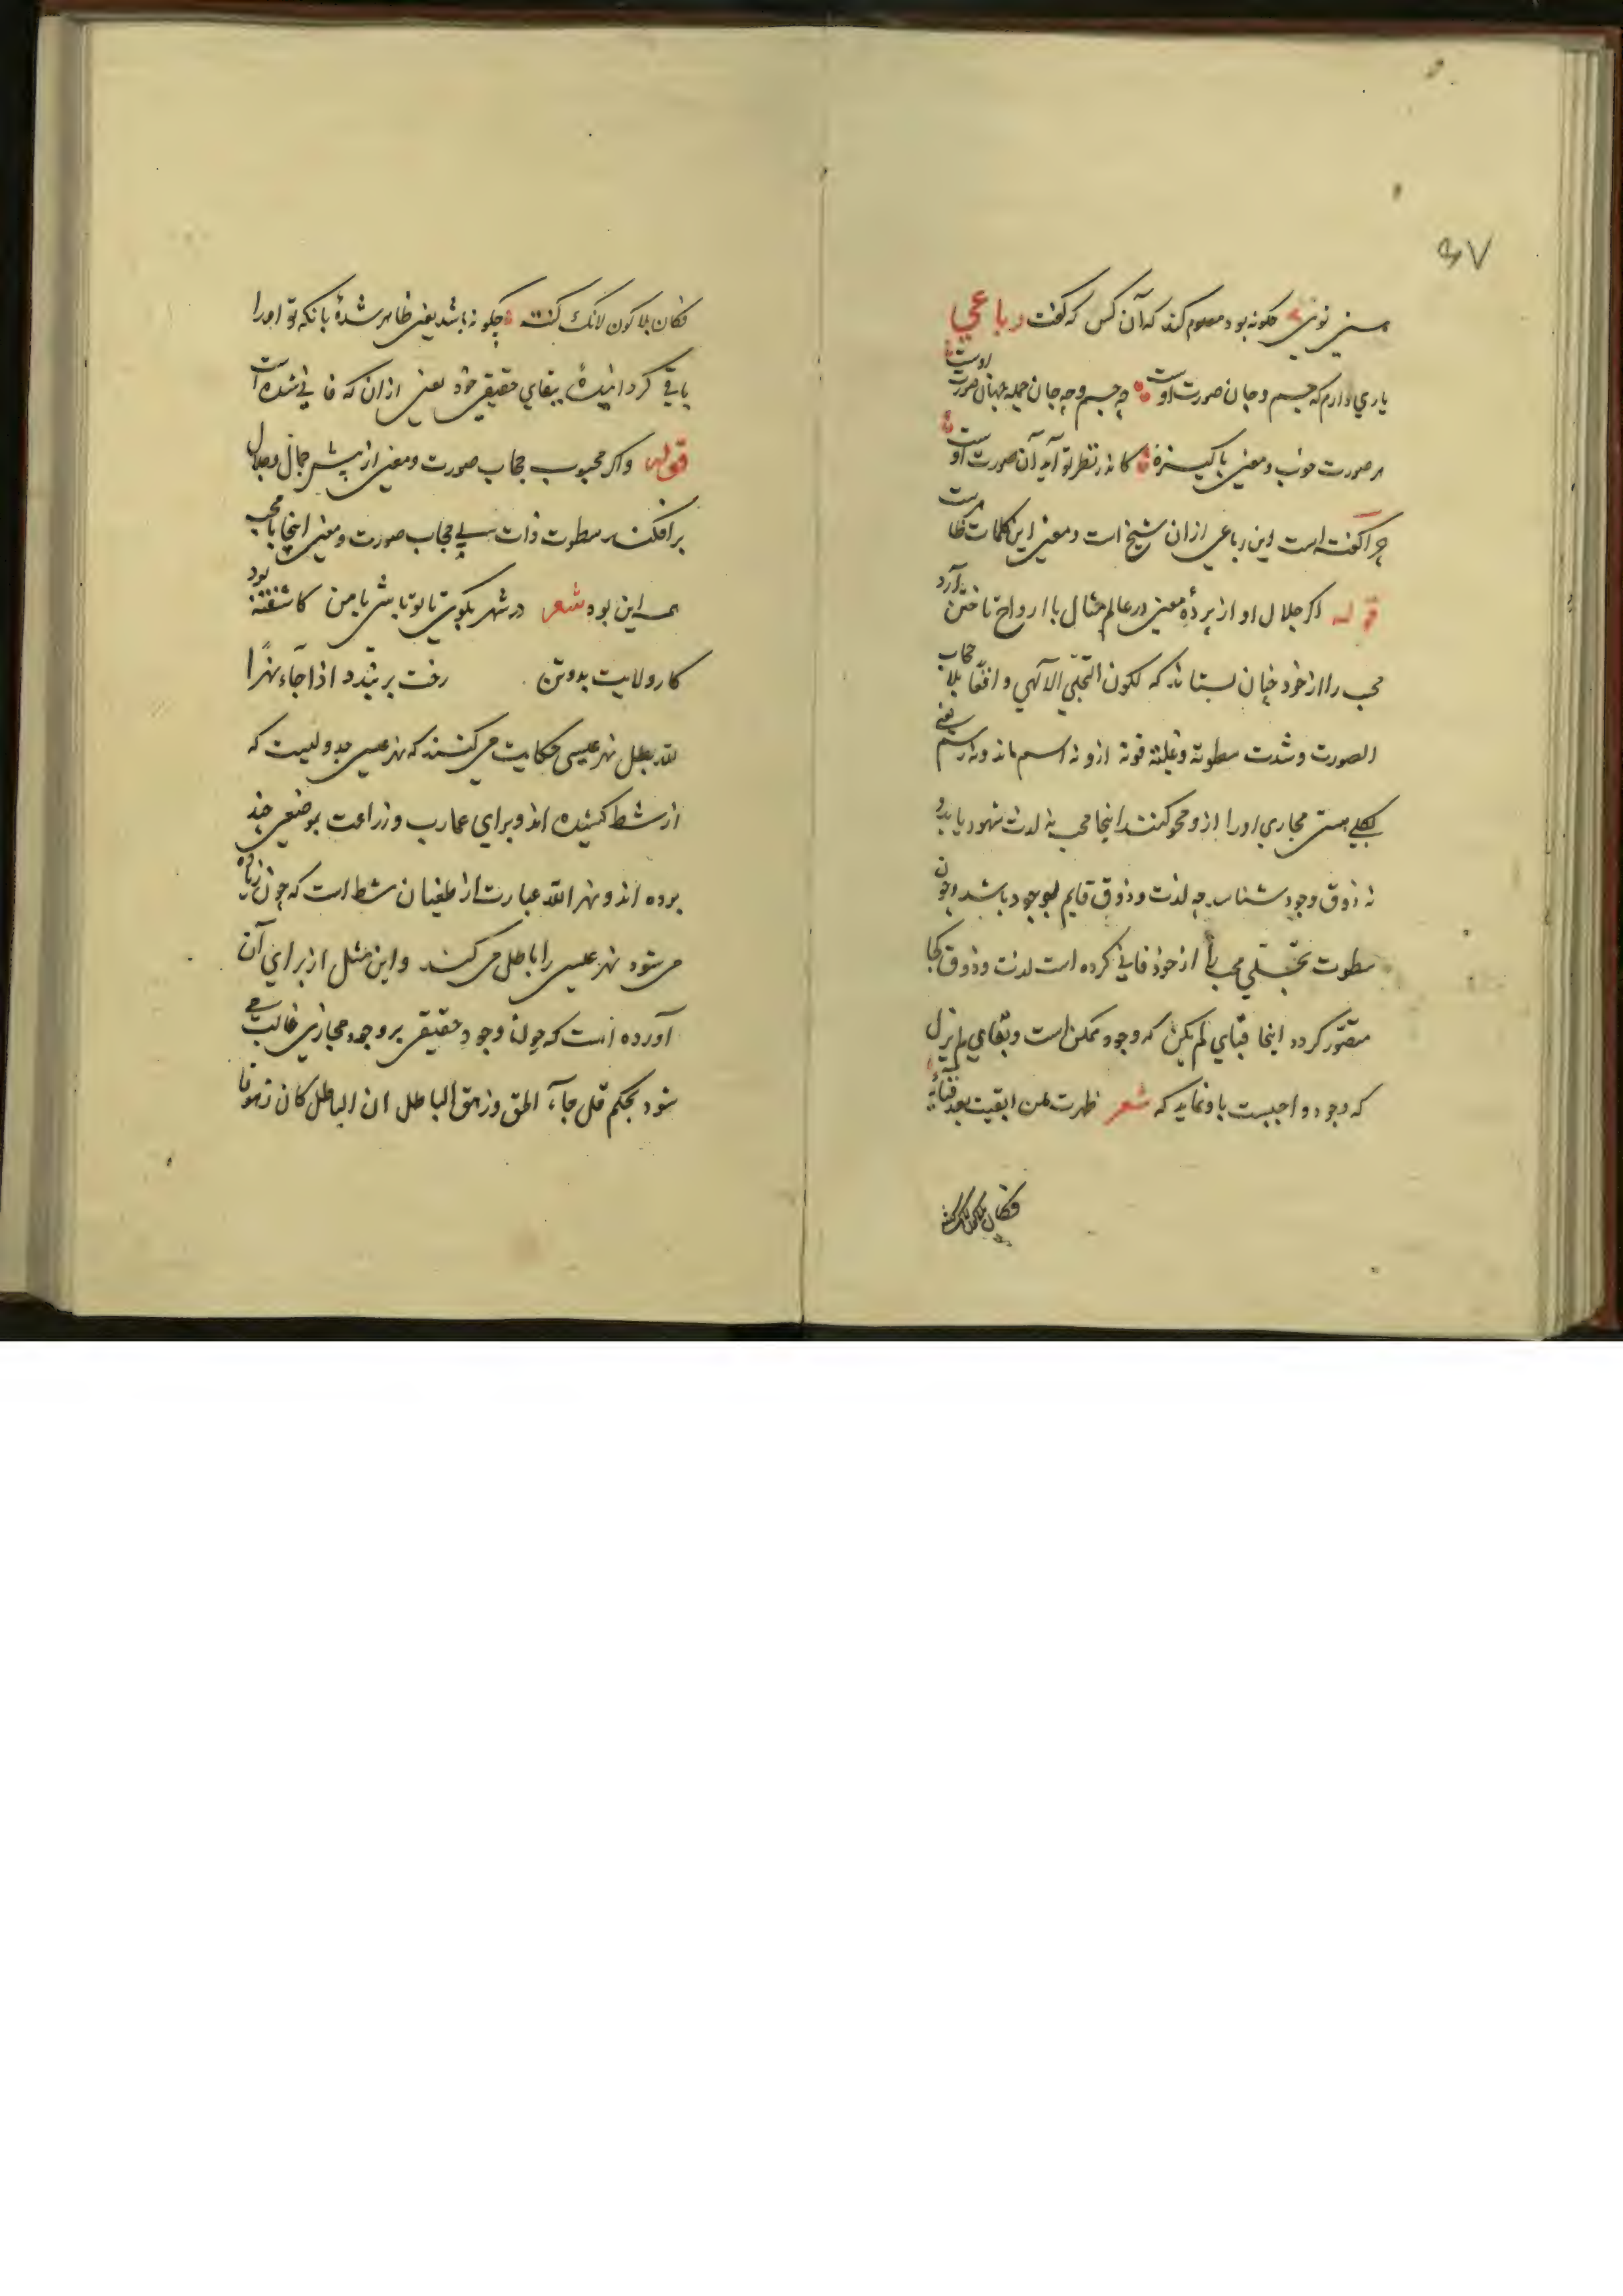 ۶۷
هستی توئی چکونه بود معلوم کند که آن کس که کفت رباعی
یاری دارم که جسم و جان صورت اوست چه جسم و چه جان جمله جهان صورت اوست
هر صورت خوب و معنی پاکیزه کاندر نظر تو آید آن صورت اوست
چرا کفته است این رباعی ازان شیخ است و معنی این کلمات ظاهرست
قوله اکر جلال او از پردهٔ معنی در عالم مثال با ارواح تاختن آرد
محب را از خود چنان بستاند که لکون التجلی الآلهی واقعا بلا حجاب
الصورت وشدت سطوته وغلبته قوته ازو نه اسم ماند ونه رسم یعنی
بکلی هستی مجازی او را ازو محو کنند اینجا محب نه لذت شهود یابد و
نه ذوق وجود شناسد چه لذت و ذوق قایم بوجود باشد و چون
سطوت تجلی محب را از خود فانی کرده است لذت و ذوق کجا
متصور کردد اینجا فنای لم یکن که وجود ممکن است و بقای لم یزل
که وجود واجبست باو نماید که شعر ظهرت لمن ابقیت بعد فنائه
فکان بلا کون لانک کنته
فکان بلا کون لانک کنته چکونه باشد یعنی ظاهر شدهٔ بانکه تو او را
باقی کردانیدهٔ ببقای حقیقی خود یعنی ازان که فانی شده است
قوله واکر محبوب حجاب صورت ومعنی از پیش جمال وجلال
برافکند سطوت ذات بی حجاب صورت ومعنی اینجا با محب
همه این بود شعر در شهر بکوی یا تو باشی یا من کاشفته بود
کار ولایت بدو تن رخت بر بندد اذا جاء نهر ا
لله بطل نهر عیسی حکایت می کنند که نهر عیسی جدولیست که
از شط کشیده اند و برای عمارت و زراعت بموضعی چند
برده اند و نهر الله عبارت از طغیان شط است که چون زیاده
می شود نهر عیسی را باطل می کند واین مثل از برای آن
آورده است که چون وجود حقیقی بر وجود مجازی غالب می
شود بحکم قل جآء الحق وزهق الباطل ان الباطل کان زهوقا